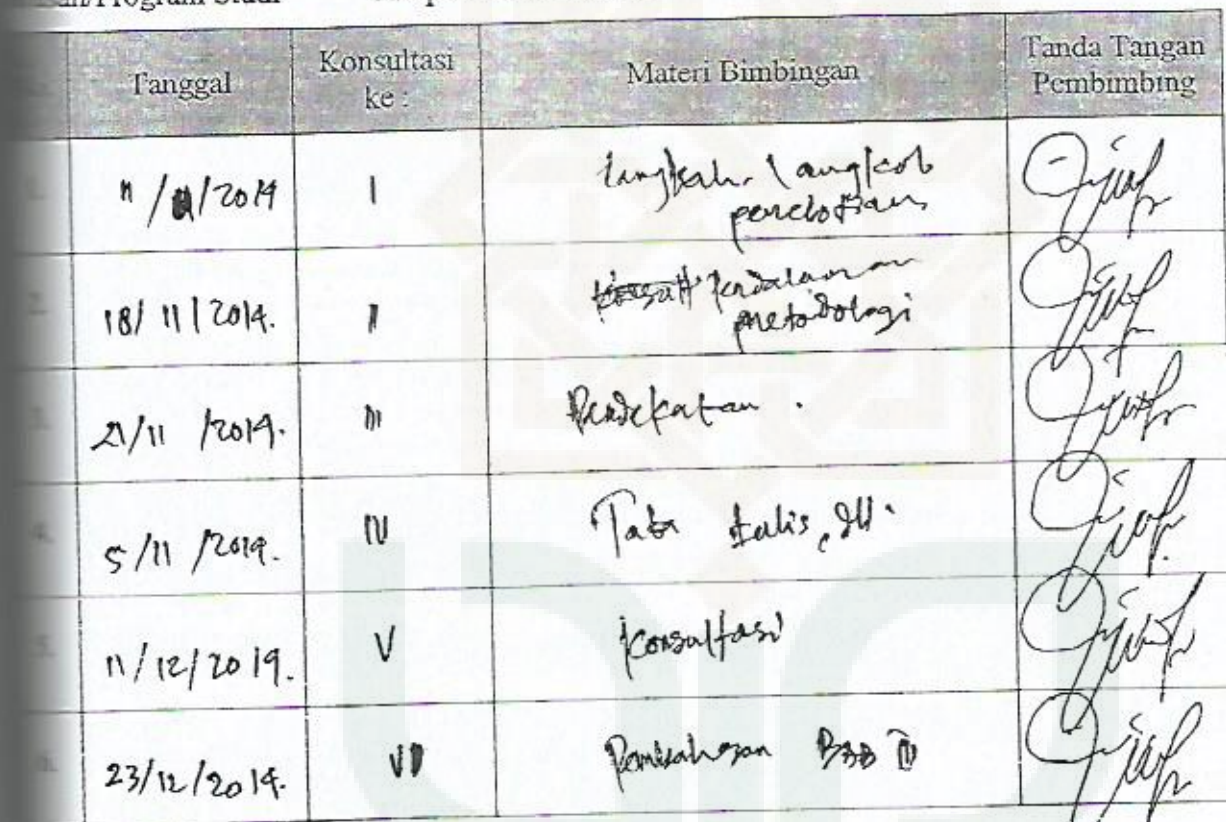 /Program Studi
Tanggal
Konsultasi
ke :
Materi Bimbingan
Tanda Tangan
Pembimbing
11/ /2014
I
langkah-langkah
penelitian
2.
18/ 11/2014.
II
metodologi
3.
21/11 /2014.
III
Pendekatan .
4.
5/11 /2014.
IV
Tata tulis, dll.
5.
11/12/2014.
V
Konsultasi
6.
23/12/2014.
VI
Pembahasan BAB